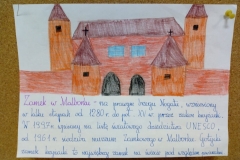 Zamek w Malborku - na prawym brzegu Nogatu, wzniesiony
w kilku etapach od 1280 r. do poł. XV w. przez zakon krzyżacki.
W 1997 r. wpisany na listę światowego dziedzictwa UNESCO,
od 1961 r. siedziba muzeum Zamkowego w Malborku. Gotycki
zamek krzyżacki to największy zamek na świecie pod względem powierzchni